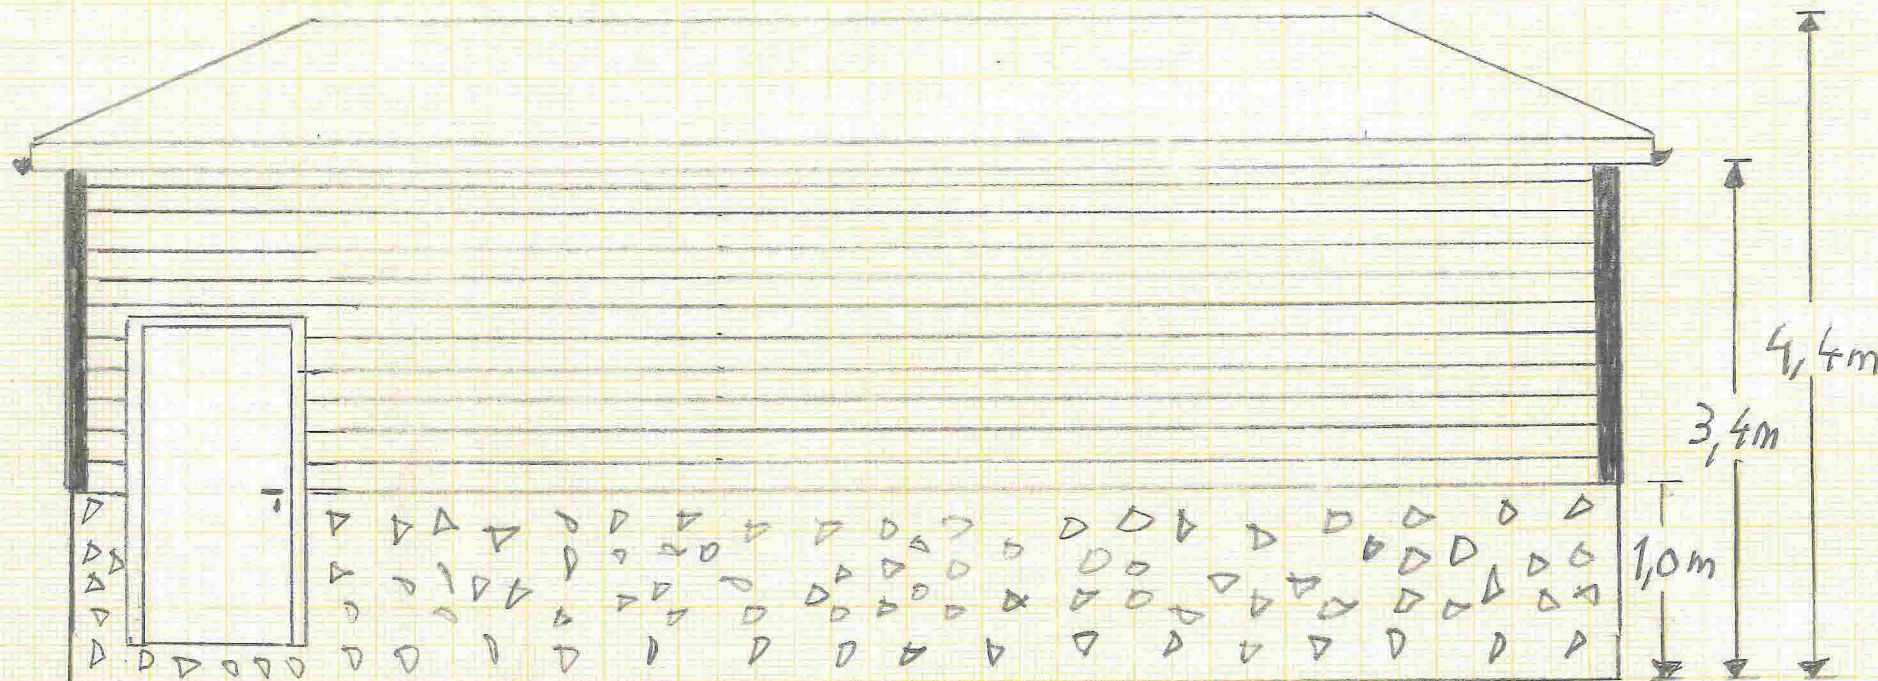 4,4m
3,4m
1,0m